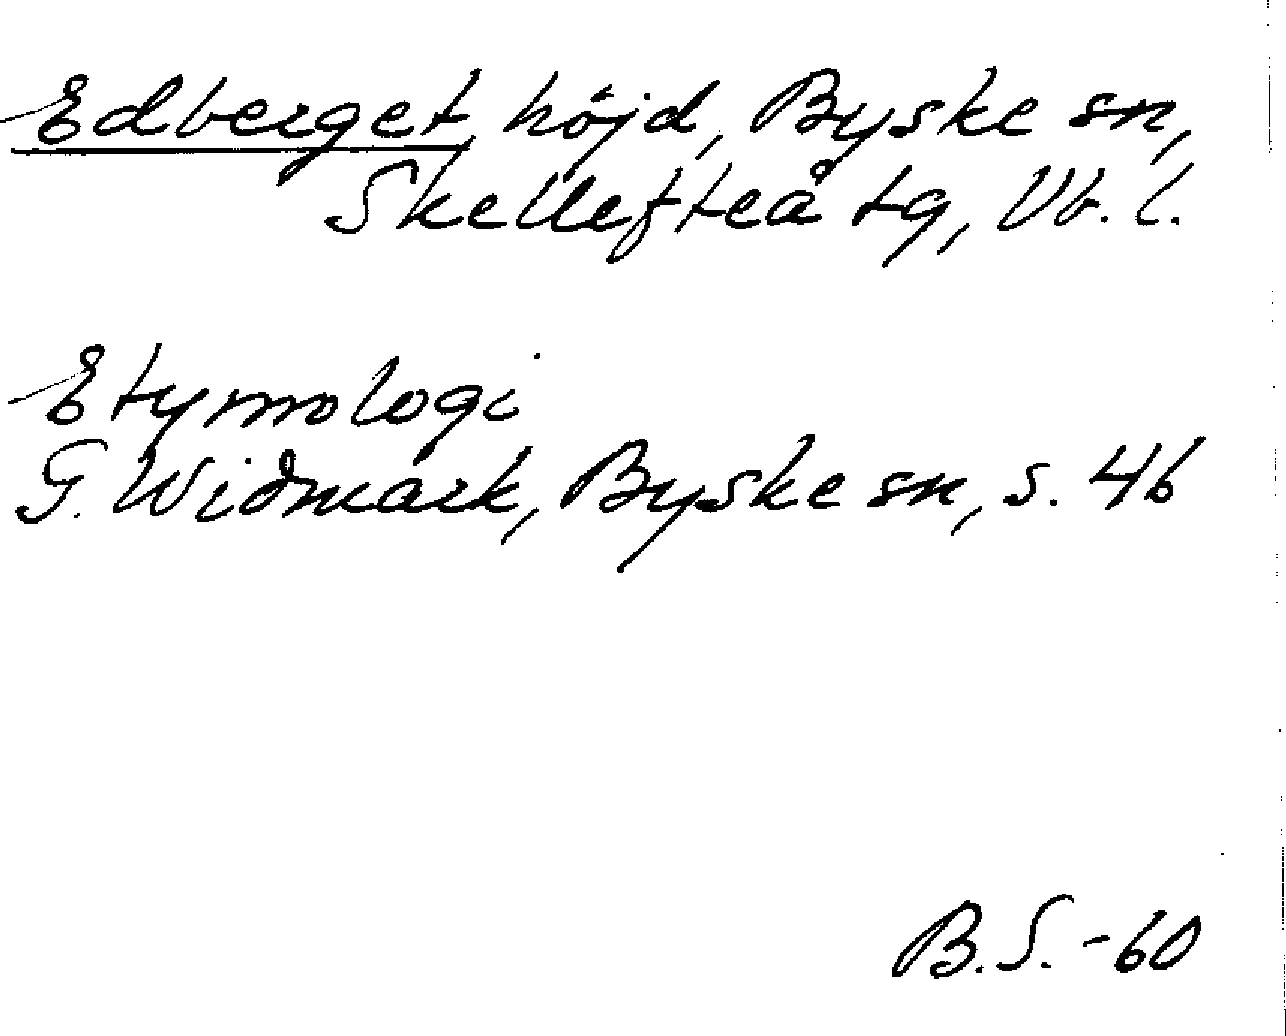 Edberget, höjd, Byske sn,
Skellefteå tg, Vb. l.
Etymologi
G. Widmark, Byske sn, s. 46
B.S. -60